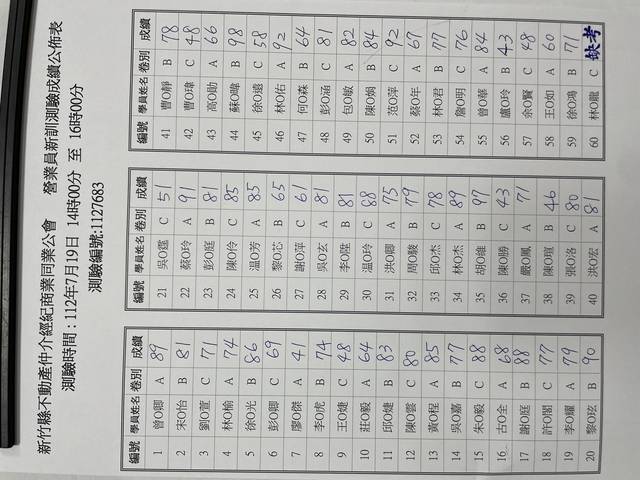 新竹縣不動產仲介經紀商業同業公會 營業員新訓測驗成績公佈表
測驗時間：112年7月19日 14時00分 至 16時00分
測驗編號:1127683
編號 學員姓名 卷別 成績
1 曾O卿 A 89
2 宋O怡 B 81
3 劉O萱 C 71
4 林O榆 A 74
5 徐O光 B 86
6 彭O卿 C 69
7 廖O傑 A 41
8 李O虎 B 74
9 王O婕 C 48
10 莊O毅 A 64
11 邱O婕 B 83
12 陳O雲 C 80
13 黃O程 A 85
14 吳O嘉 B 77
15 朱O毅 C 88
16 古O全 A 68
17 謝O庭 B 88
18 許O閣 C 77
19 李O耀 A 79
20 黎O玹 B 90
編號 學員姓名 卷別 成績
21 吳O霆 C 51
22 蔡O玲 A 91
23 彭O庭 B 81
24 陳O伶 C 85
25 溫O芳 A 85
26 黎O芯 B 65
27 謝O萍 C 61
28 吳O玄 A 81
29 李O陞 B 81
30 溫O玲 C 88
31 洪O卿 A 75
32 周O駿 B 79
33 邱O杰 C 78
34 林O杰 A 89
35 胡O維 B 97
36 陳O勝 C 43
37 嚴O鳳 A 71
38 陳O瑄 B 46
39 張O洛 C 80
40 洪O宏 A 81
編號 學員姓名 卷別 成績
41 曹O靜 B 78
42 曹O瑋 C 48
43 高O勛 A 66
44 蘇O暐 B 98
45 徐O遠 C 58
46 林O佑 A 92
47 何O森 B 64
48 彭O涵 C 81
49 包O敏 A 82
50 陳O炳 B 84
51 范O萍 C 92
52 蔡O年 A 67
53 林O君 B 77
54 詹O明 C 76
55 曾O華 A 84
56 盧O玲 B 43
57 余O賢 C 48
58 王O如 A 60
59 徐O鴻 B 71
60 林O龍 C 缺考